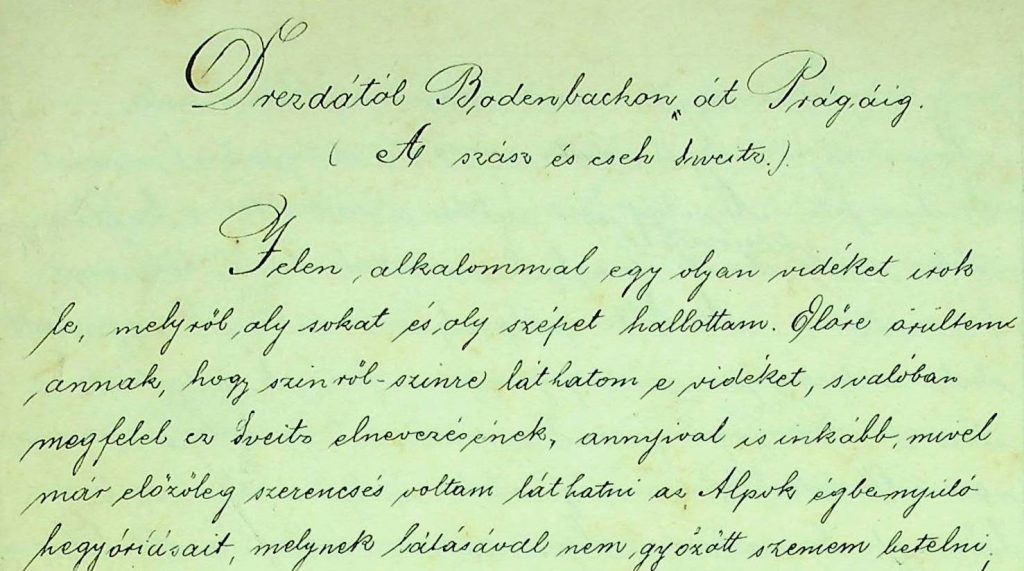 Drezdától Bodenbachon át Prágáig.
( A szász és cseh Sveitz.)
Jelen alkalommal egy olyan vidéket irok
le, melyről oly sokat és oly szépet hallottam. Előre örültem
annak, hogy szinről-szinre láthatom e vidéket, s valóban
megfelel ez Sveitz elnevezésének, annyival is inkább, mivel
már előzőleg szerencsés voltam láthatni az Alpok égbenyúló
hegyóriásait, melynek látásával nem győzött szemem betelni,